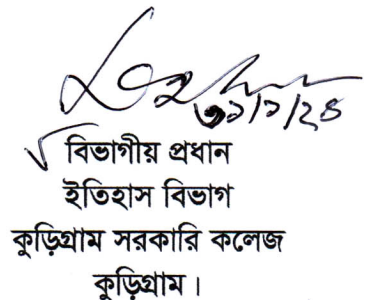 ৩১/১/২৪
বিভাগীয় প্রধান
ইতিহাস বিভাগ
কুড়িগ্রাম সরকারি কলেজ
কুড়িগ্রাম।